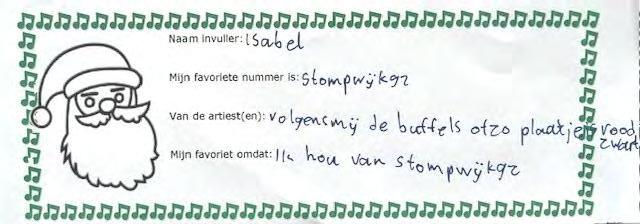 Naam invuller: Isabel
Mijn favoriete nummer is: Stompwijkgz
Van de artiest(en): volgensmij de buffels ofzo plaatje is rood
zwart
Mijn favoriet omdat: Ik hou van stompwijkgz